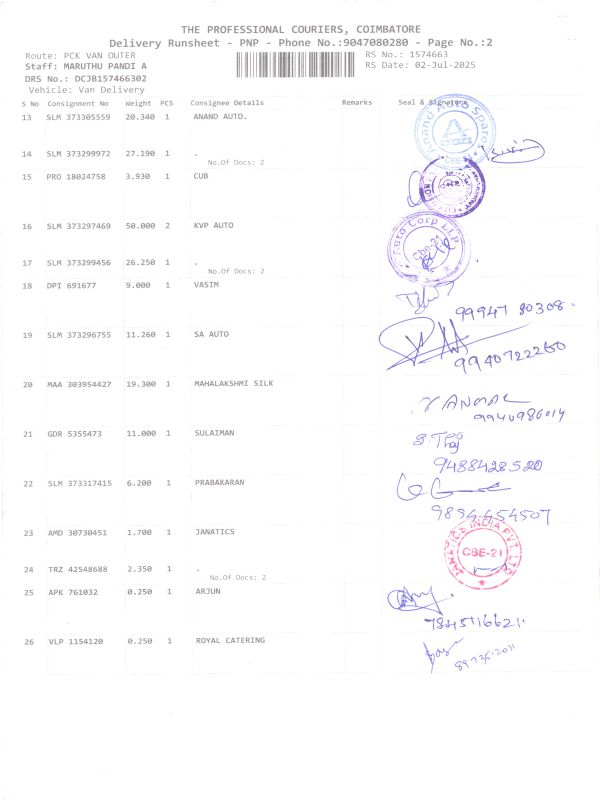 THE PROFESSIONAL COURIERS, COIMBATORE
Delivery Runsheet - PNP - Phone No.:9047080280 - Page No.:2
Route: PCK VAN OUTER RS No.: 1574663
Staff: MARUTHU PANDI A RS Date: 02-Jul-2025
DRS No.: DCJB157466302
Vehicle: Van Delivery
S No Consignment No Weight PCS Consignee Details Remarks Seal & Signature
13 SLM 373305559 20.340 1 ANAND AUTO.
Anand Auto Spare
14 SLM 373299972 27.190 1 .
CBE
No.Of Docs: 2
15 PRO 18024758 3.930 1 CUB
16 SLM 373297469 50.000 2 KVP AUTO
Auto Corp LLP
CBE-21
17 SLM 373299456 26.250 1 .
No.Of Docs: 2
18 DPI 691677 9.000 1 VASIM
99947 80308.
19 SLM 373296755 11.260 1 SA AUTO
9940722260
20 MAA 303954427 19.300 1 MAHALAKSHMI SILK
9940986014
21 GDR 5355473 11.000 1 SULAIMAN
9488428520
22 SLM 373317415 6.200 1 PRABAKARAN
9894454507
23 AMD 30730451 1.700 1 JANATICS
JANATICS INDIA PVT. LTD
CBE-21
24 TRZ 42548688 2.350 1 .
No.Of Docs: 2
25 APK 761032 0.250 1 ARJUN
7845116621.
26 VLP 1154120 0.250 1 ROYAL CATERING